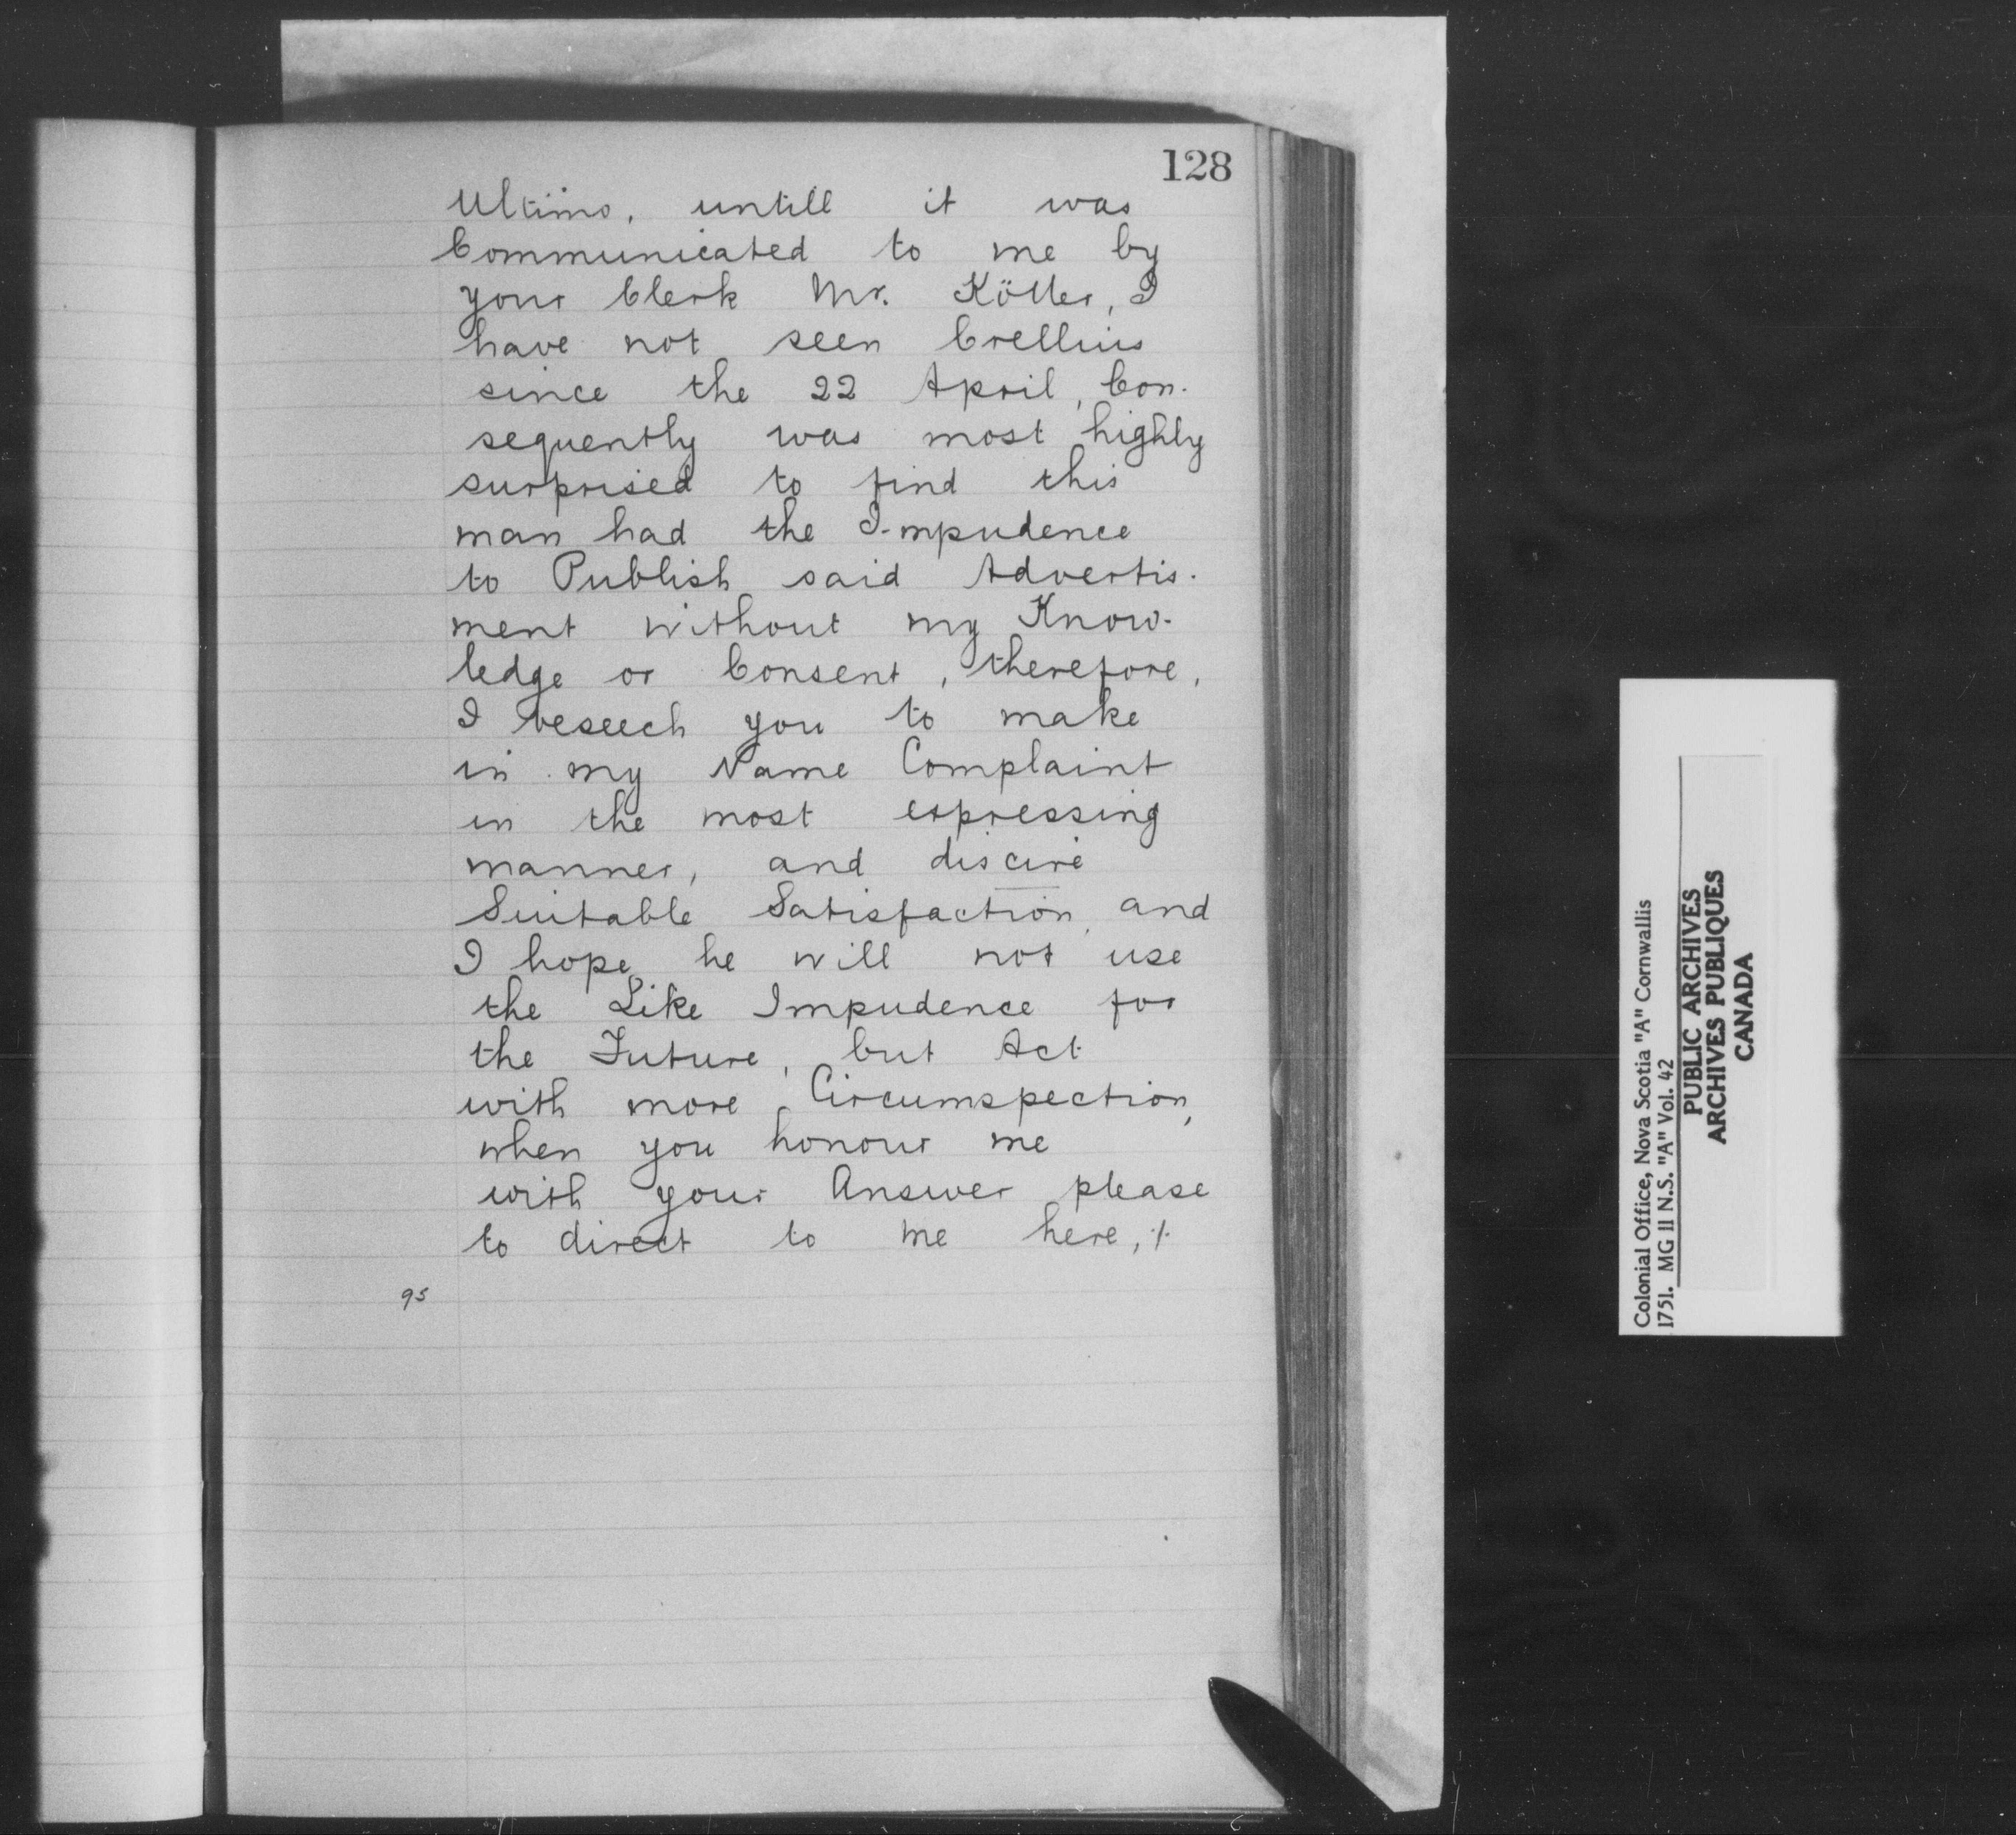 128
Ultimo, untill it was
Communicated to me by
your Clerk Mr. Köller, I
have not seen Crellius
since the 22 April, Con-
sequently was most highly
surprised to find this
man had the Impudence
to Publish said Advertis-
ment without my Know-
ledge or Consent, therefore,
I beseech you to make
in my Name Complaint
in the most expressing
manner, and discire
Suitable Satisfaction, and
I hope, he will not use
the Like Impudence for
the Future, but Act
with more Circumspection,
when you honour me
with your Answer please
to direct to me here, ⁒
95
Colonial Office, Nova Scotia "A" Cornwallis
1751. MG 11 N.S. "A" Vol. 42
PUBLIC ARCHIVES
ARCHIVES PUBLIQUES
CANADA